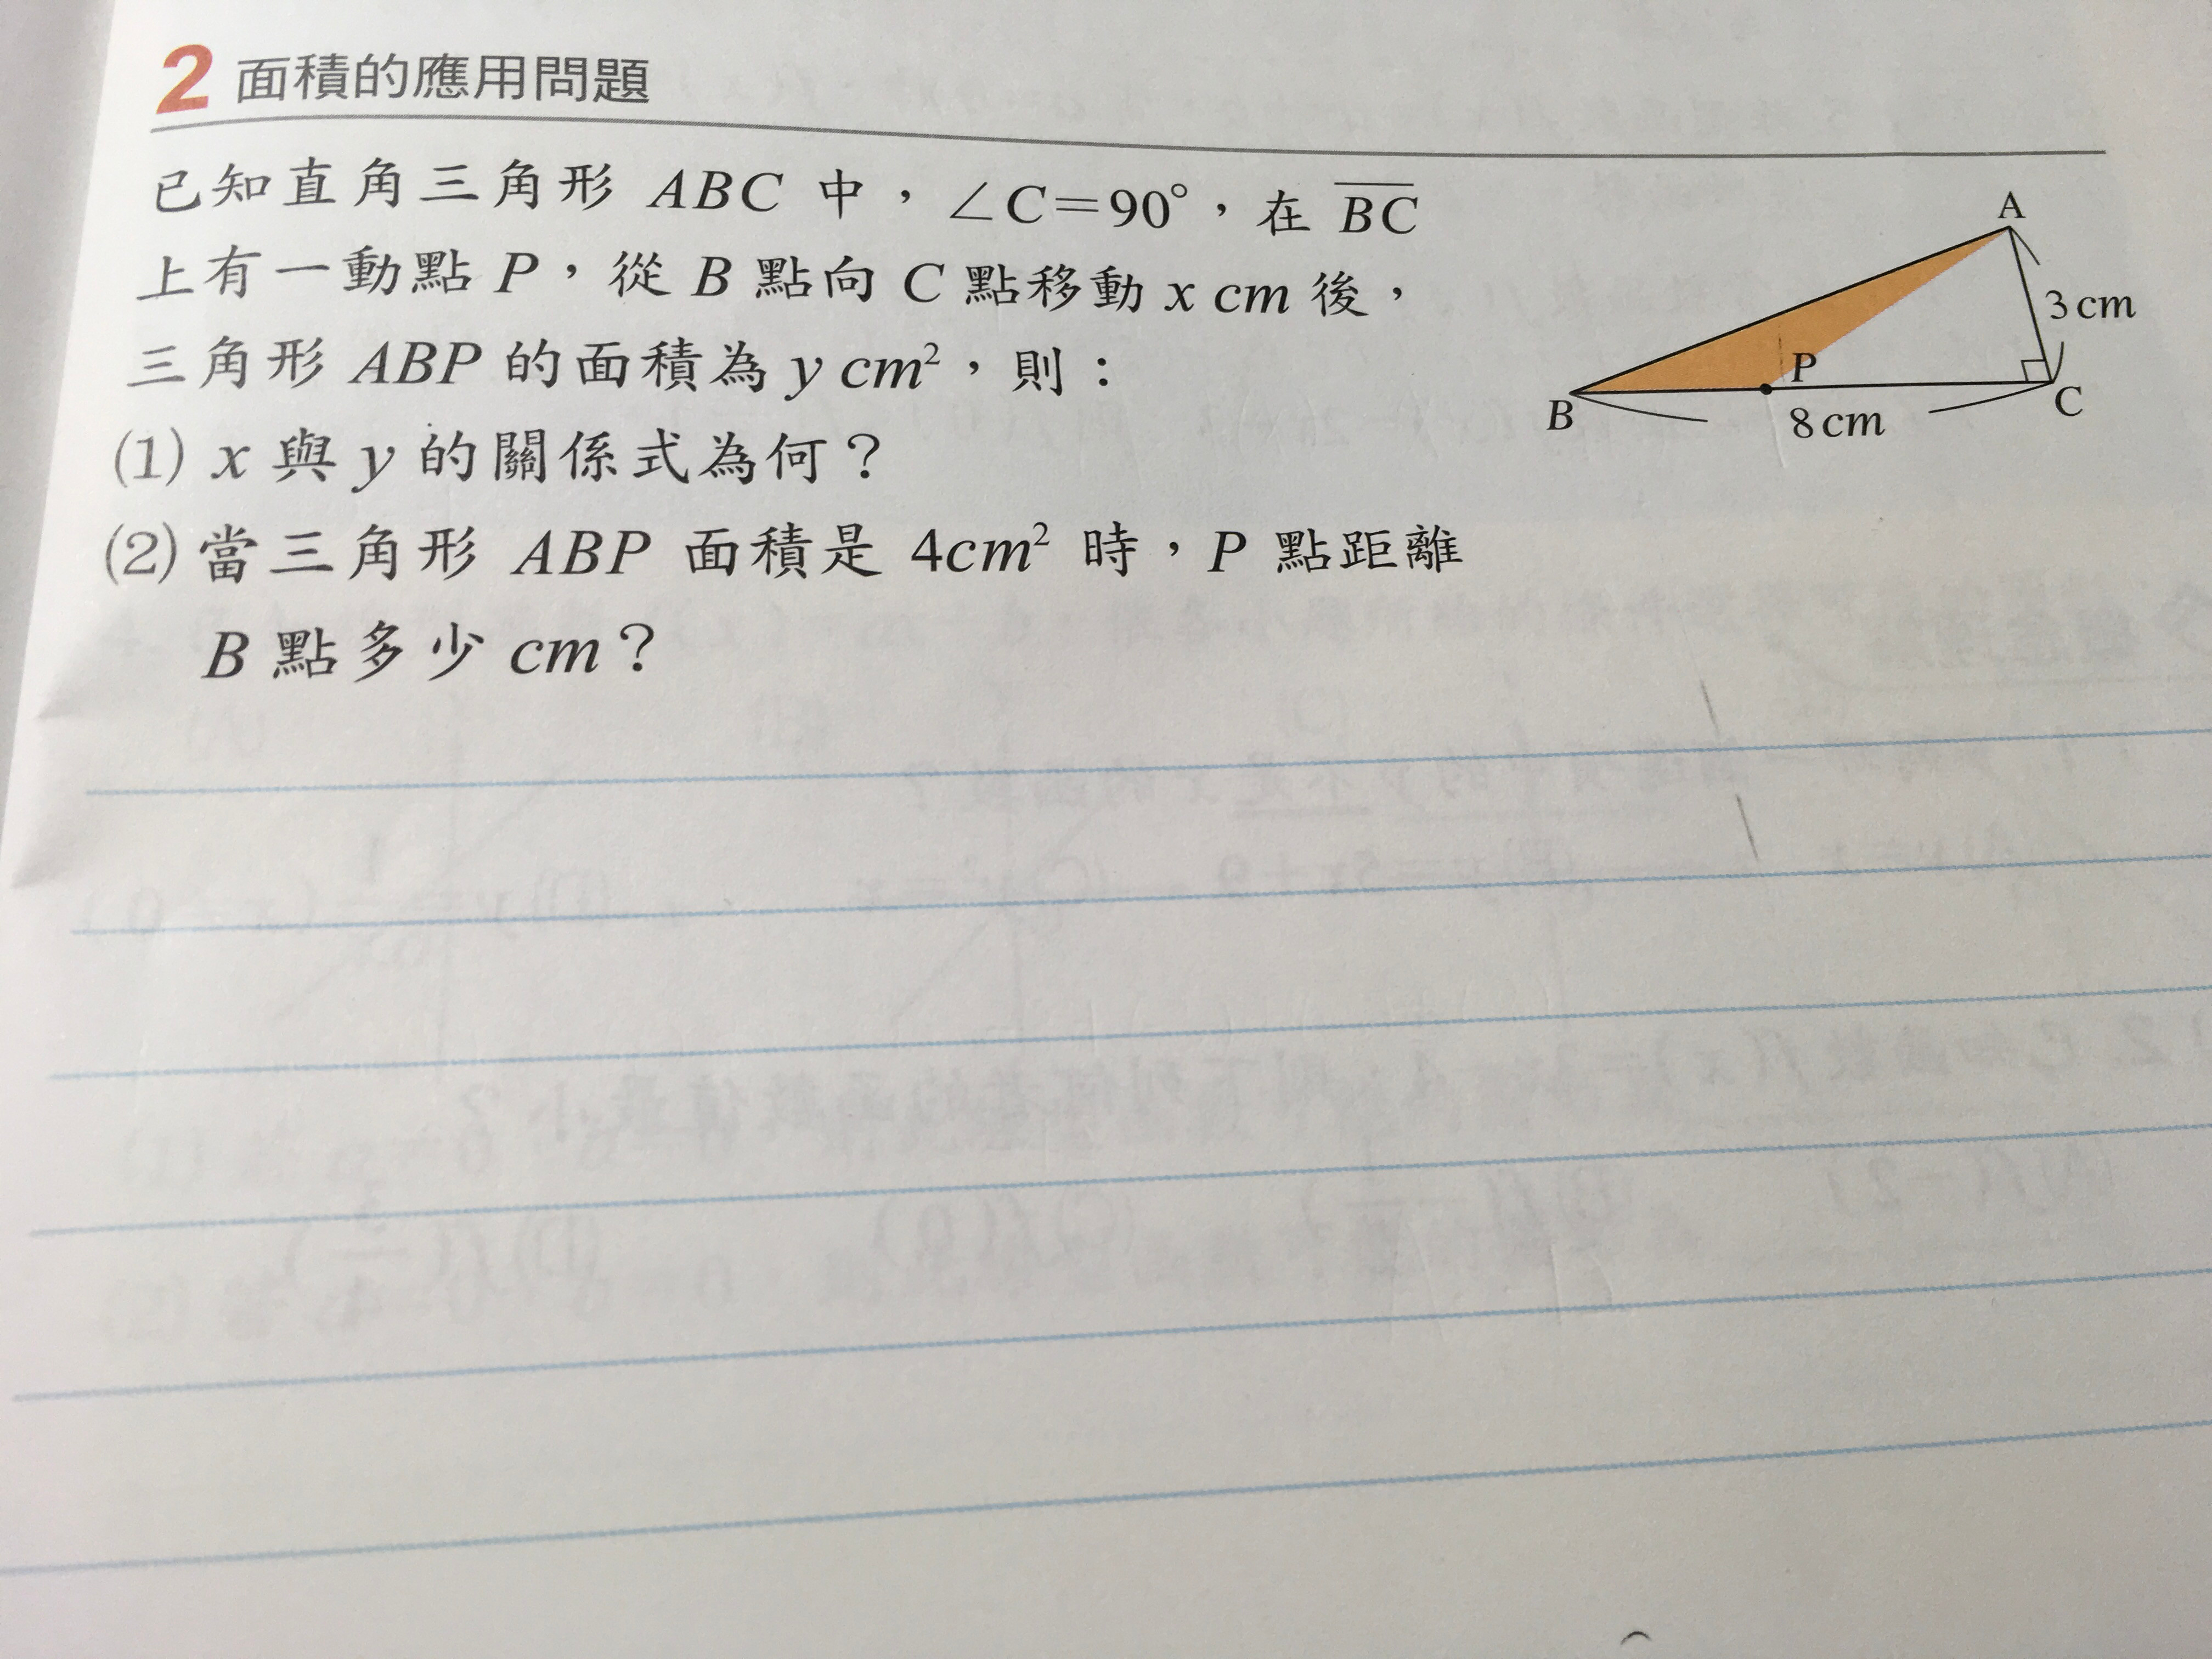 2 面積的應用問題
已知直角三角形 ABC 中，∠C＝90°，在 BC
上有一動點 P，從 B 點向 C 點移動 x cm 後，
三角形 ABP 的面積為 y cm²，則：
(1) x 與 y 的關係式為何？
(2) 當三角形 ABP 面積是 4cm² 時，P 點距離
B 點多少 cm？
A
3 cm
P
B
C
8 cm